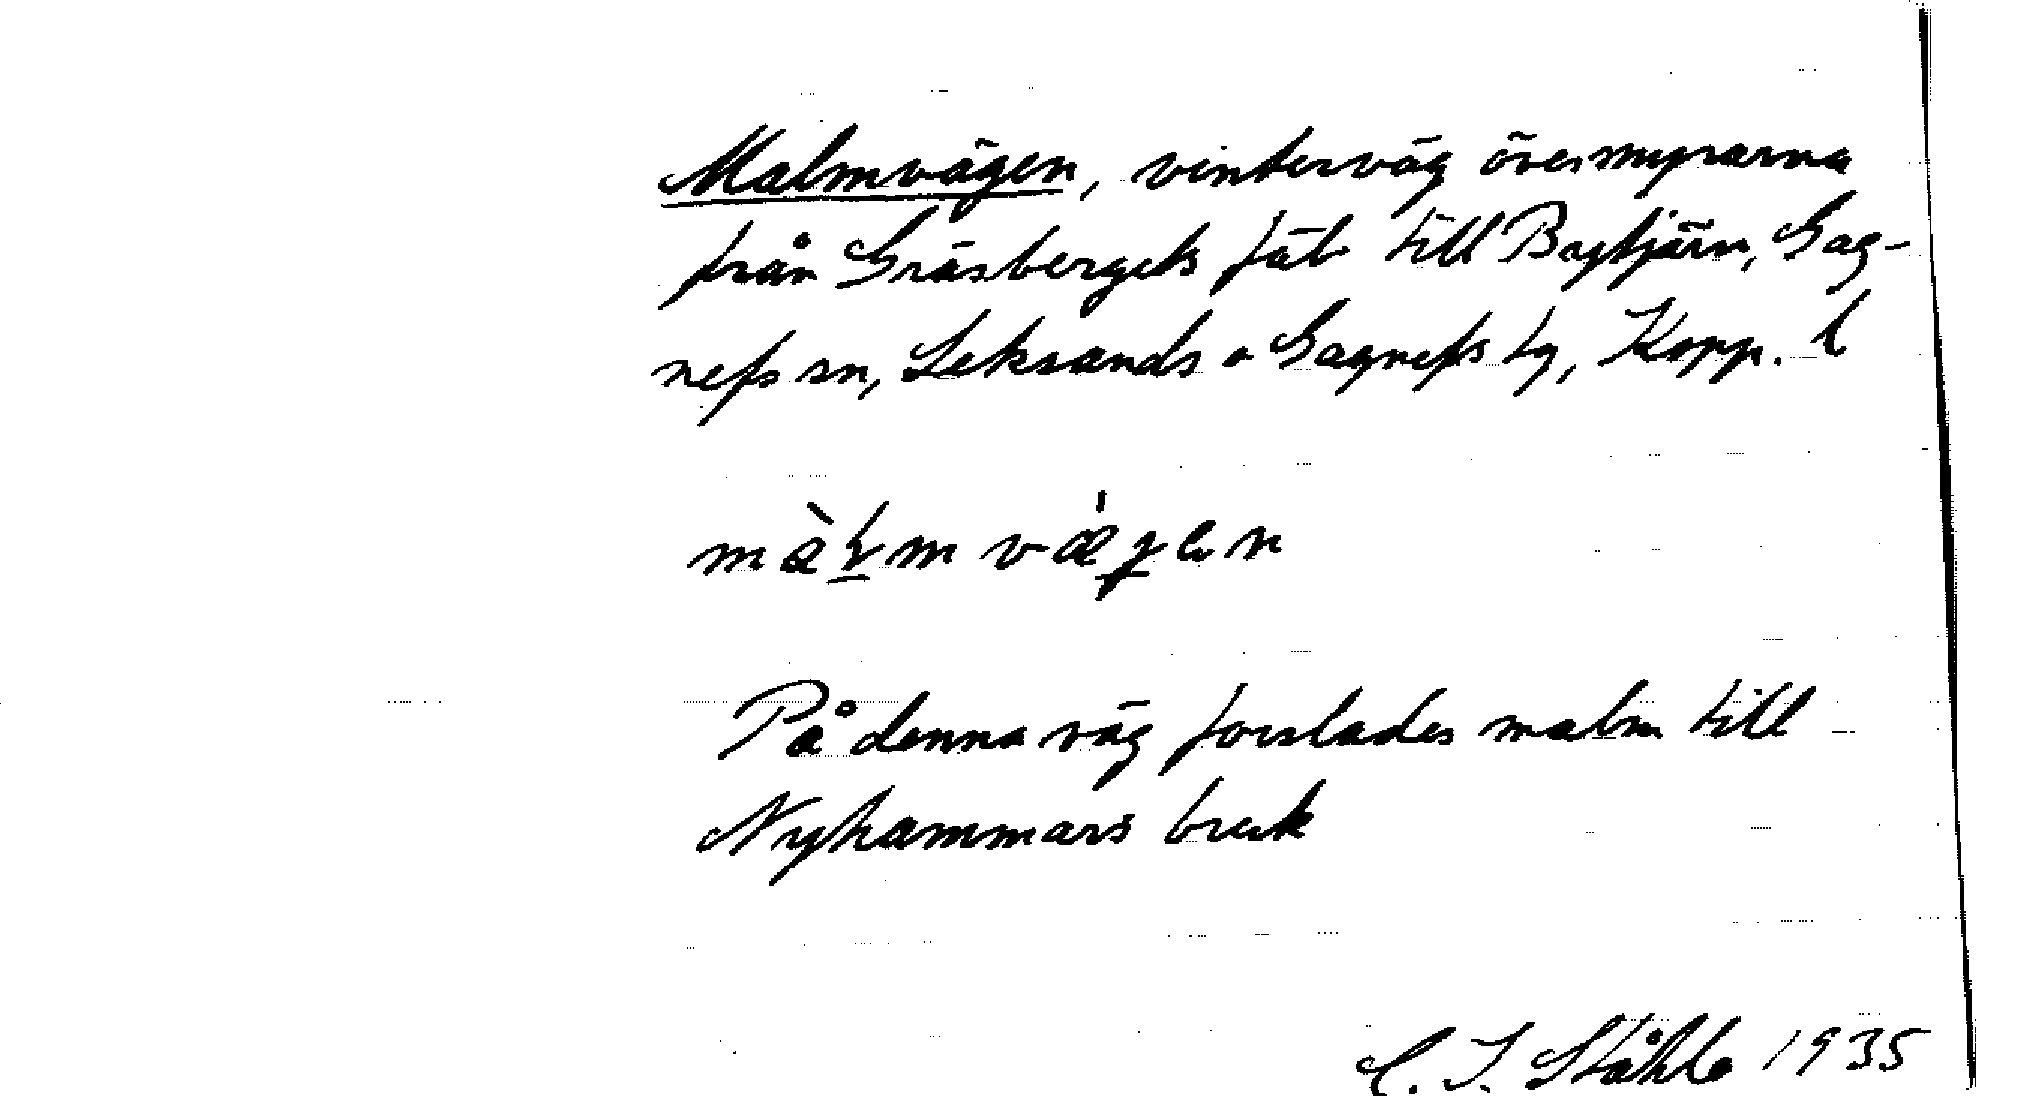 Malmvägen, vinterväg över myrarna
från Gräsbergets fäb till Bastjärn, Gag-
nefs sn, Leksands o Gagnefs tg, Kopp. l
På denna väg forslades malm till
Nyhammars bruk
C. I. Ståhle 1935